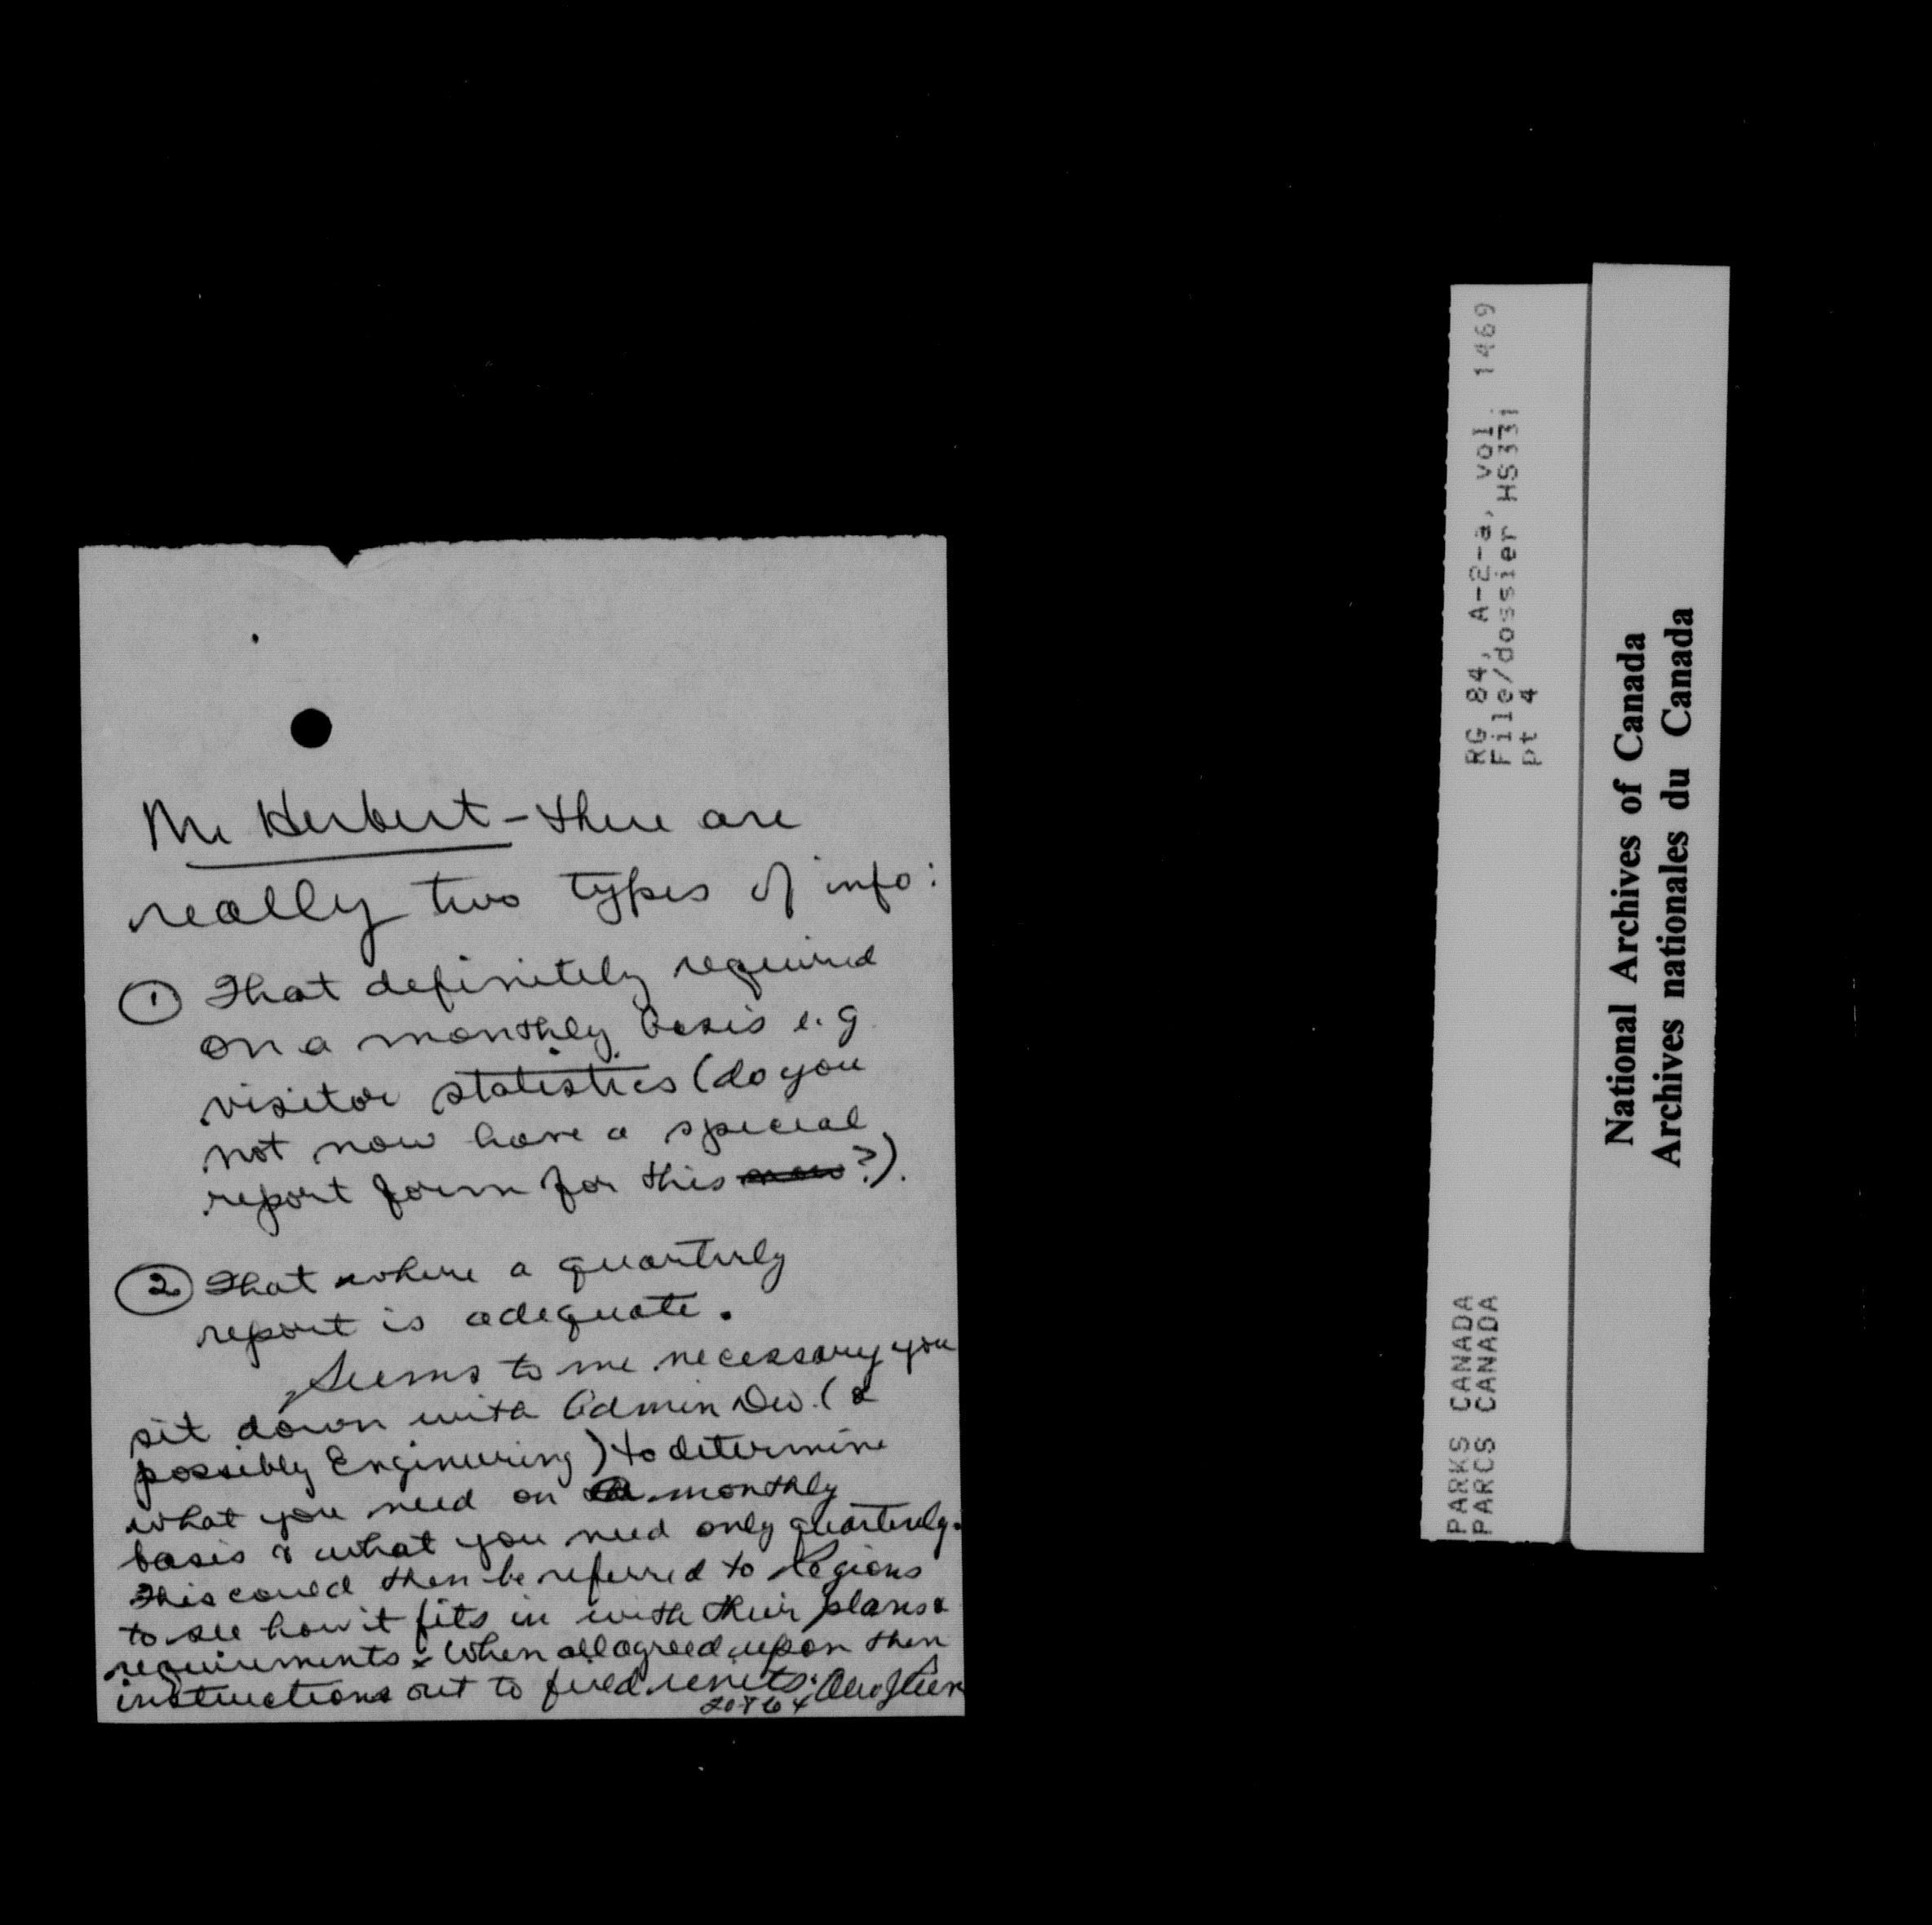 Mr Herbert - there are
really two types of info:
① That definitely required
on a monthly basis e.g
visitor statistics (do you
not now have a special
report form for this now?).
② That where a quarterly
report is adequate.
Seems to me necessary you
sit down with Admin Div. (&
possibly Engineering) to determine
what you need on a monthly
basis & what you need only quarterly.
This could then be referred to Regions
to see how it fits in with their plans &
requirements. When all agreed upon then
instructions out to field units.
RG 84, A-2-a, vol. 1469
File/dossier HS331
pt 4
PARKS CANADA
PARCS CANADA
National Archives of Canada
Archives nationales du Canada